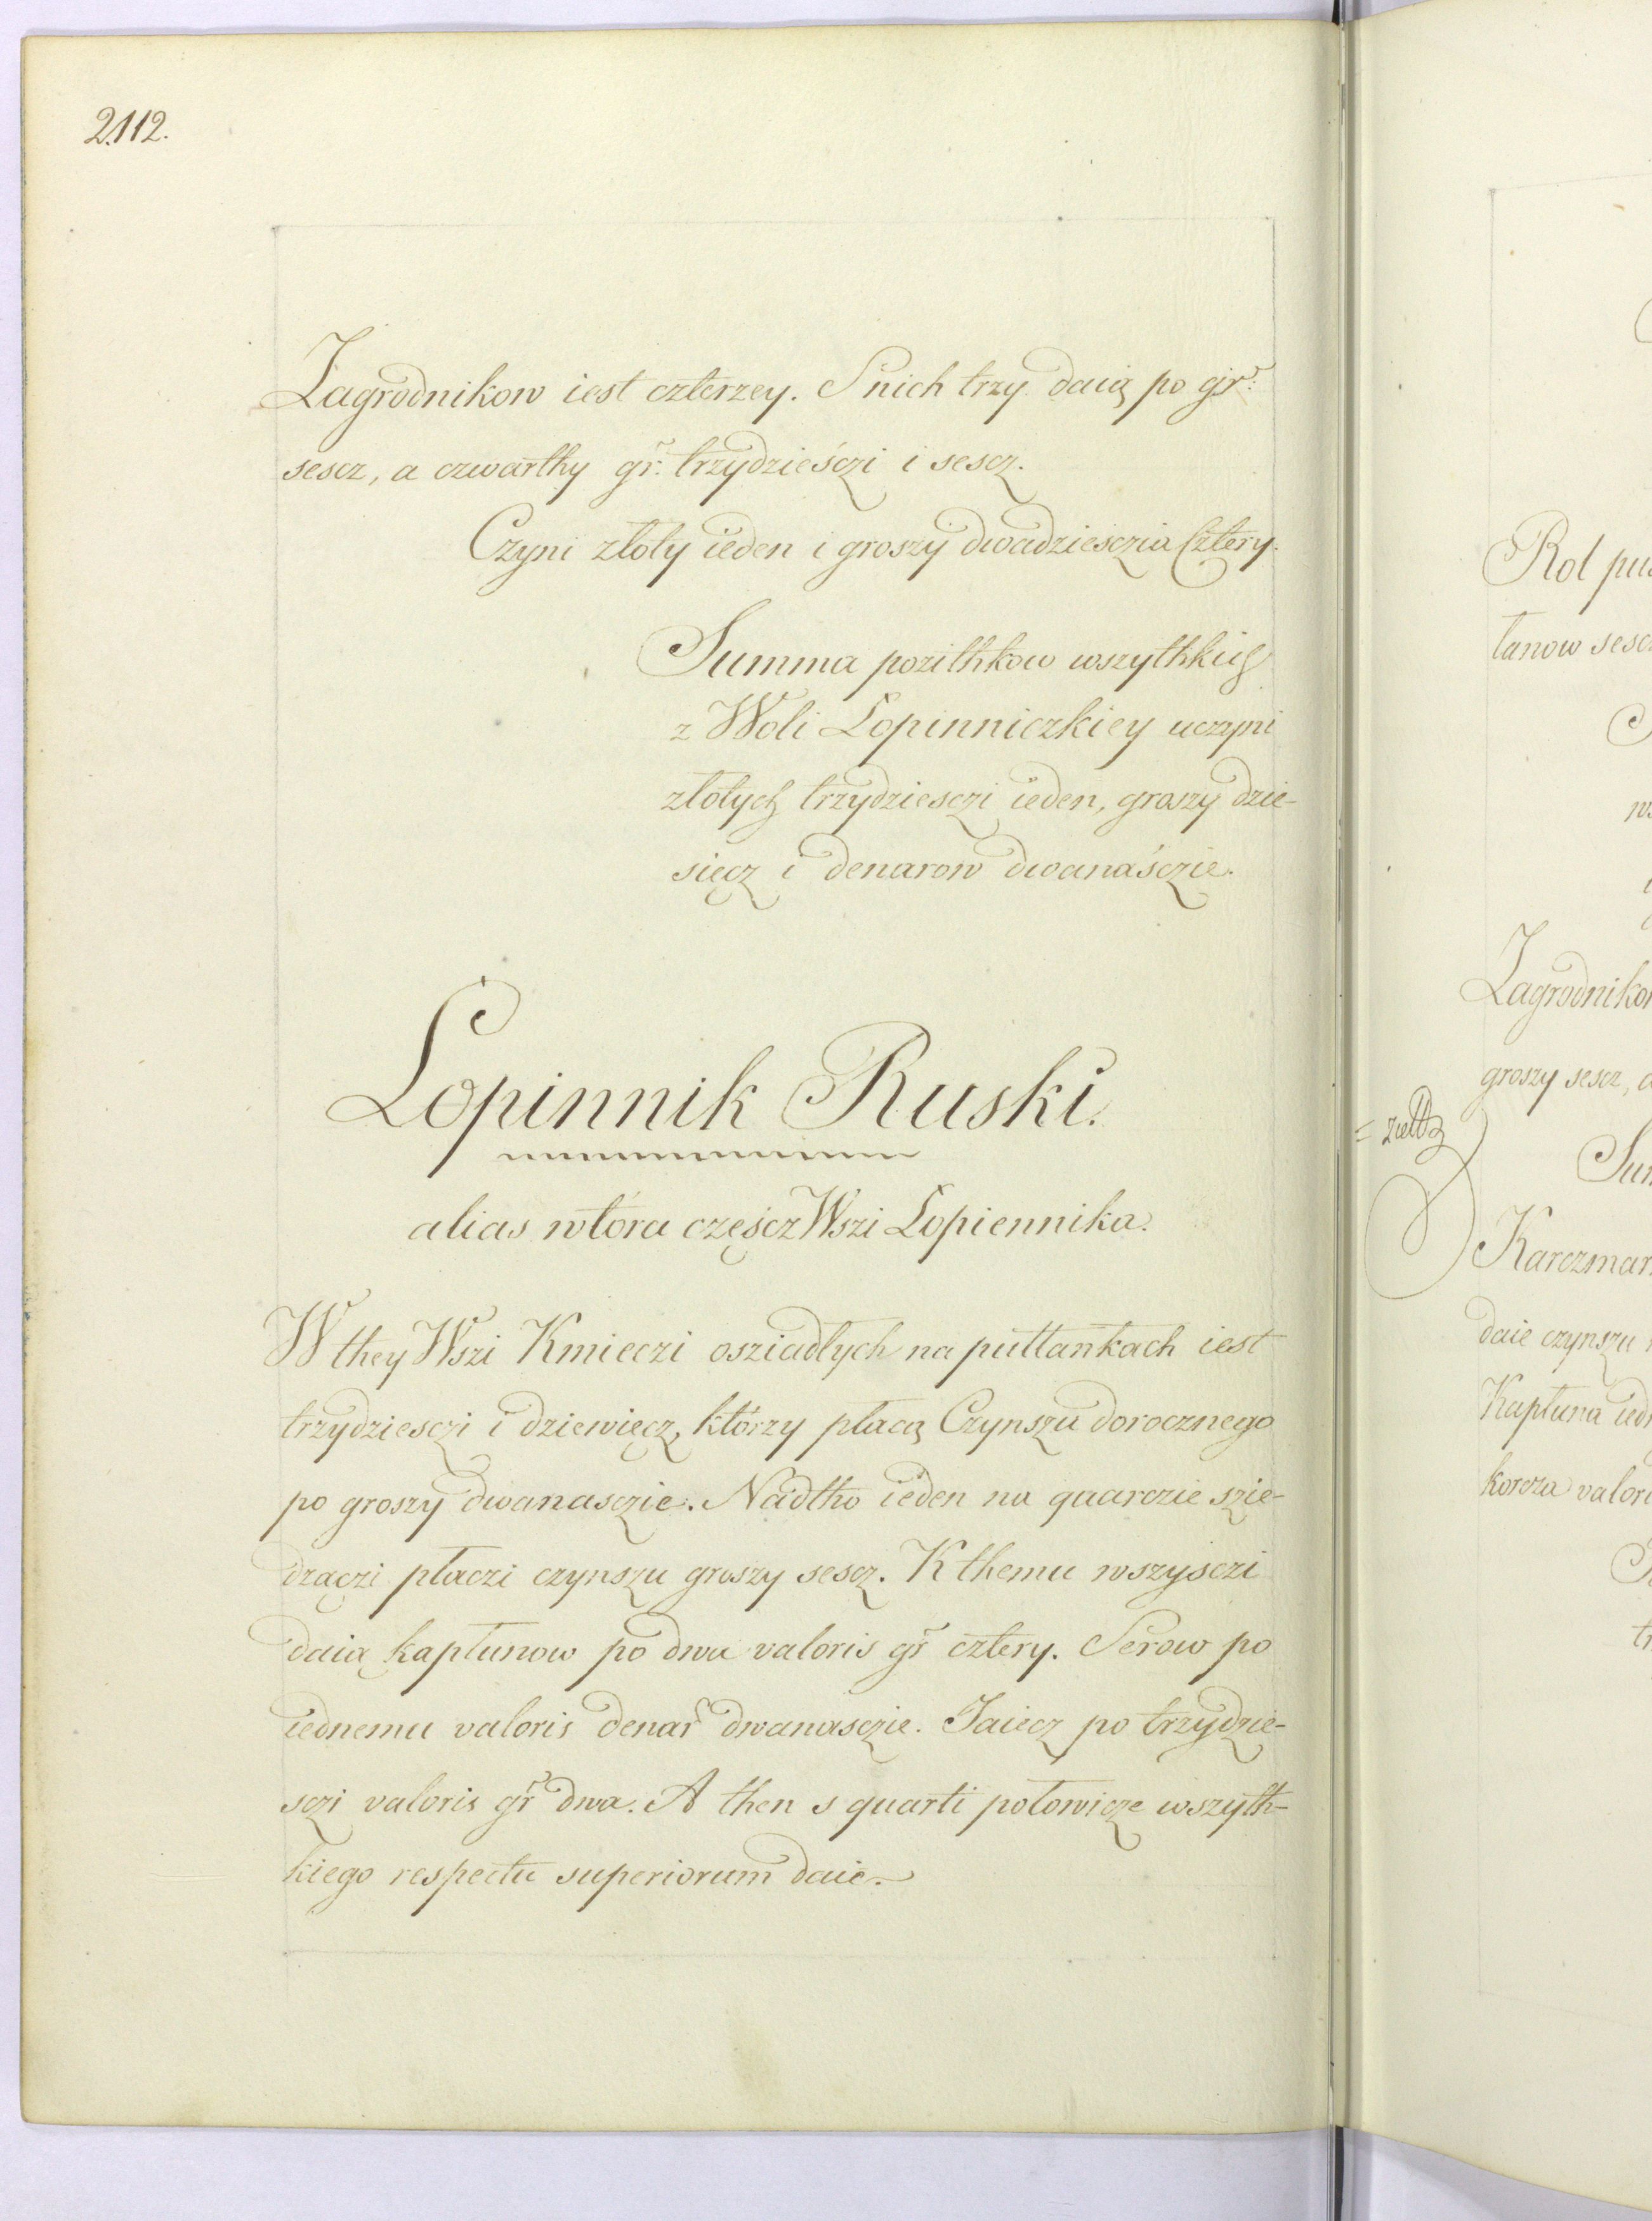 2112.
Zagrodnikow iest czterzey. S nich trzy daią po gr:
sescz, a czwarthy gr: trzydzieśczi i sescz.
Czyni złoty ieden i groszy dwadziesczia Cztery.
Summa pozithkow wszythkich
z Woli Łopinniczkiey uczyni
złotych trzydziesczi ieden, groszy dzie-
sięcz i denarow dwanaśczie.
Łopinnik Ruski.
alias wtóra częścz Wszi Łopiennika.
W they Wszi Kmieczi osziadłych na pułłankach iest
trzydziesczi i dziewięcz, którzy płacą Czynszu dorocznego
po groszy dwanasczie. Nadtho ieden na quarczie szie-
dzączi płaczi czynszu groszy sescz. K themu wszysczi
daią kapłunow po dwa valoris gr cztery. Serow po
iednemu valoris denar dwanasczie. Jaiecz po trzydzie-
sczi valoris gr dwa. A then s quarti połowicze wszyth-
kiego respectu superiorum daie.
Rol
łanow
Zagrodnikow
groszy sescz,
Karczmar
daie czynszu
Kapłuna
korcza valori